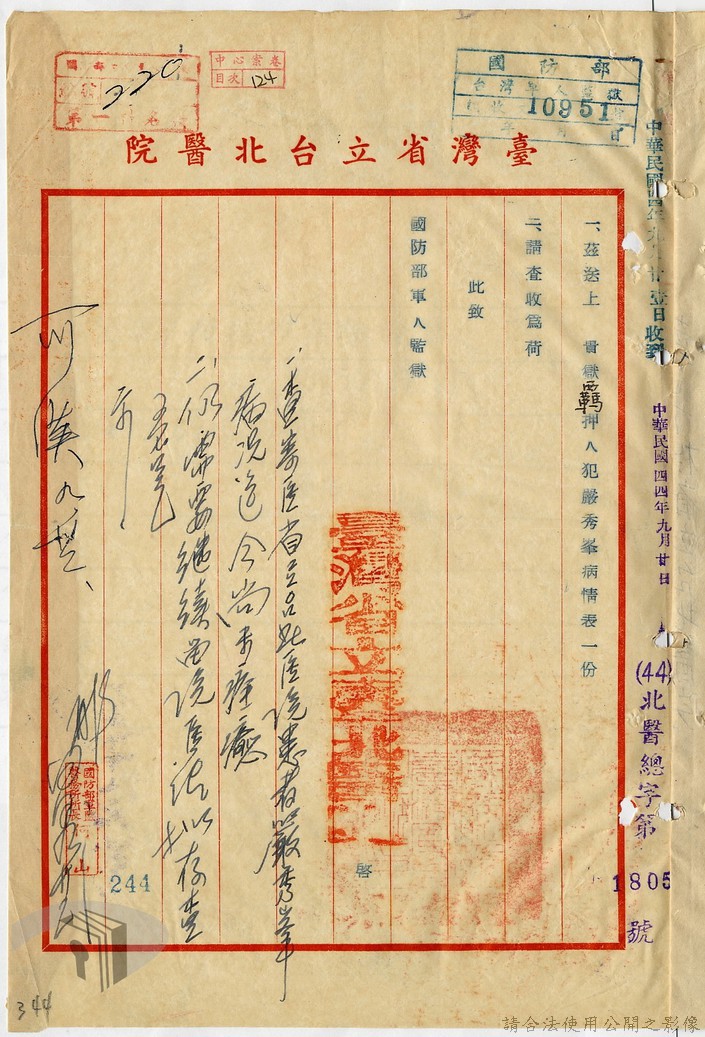 中心案卷
目次 124
220
國防部
台灣軍人監獄
收 10951
臺灣省立台北醫院
中華民國四四年九月廿壹日收到
中華民國四四年九月廿日
(44)北醫總字第1805號
一、茲送上 貴獄羈押人犯嚴秀峯病情表一份
二、請查收為荷
此致
國防部軍人監獄
臺灣省立台北醫院 啓
一、查寄医省立台北医院患者嚴秀峯
病況迄今尚未痊癒
二、仍需要继續留院医治擬存查
示
可
244
344
請合法使用公開之影像